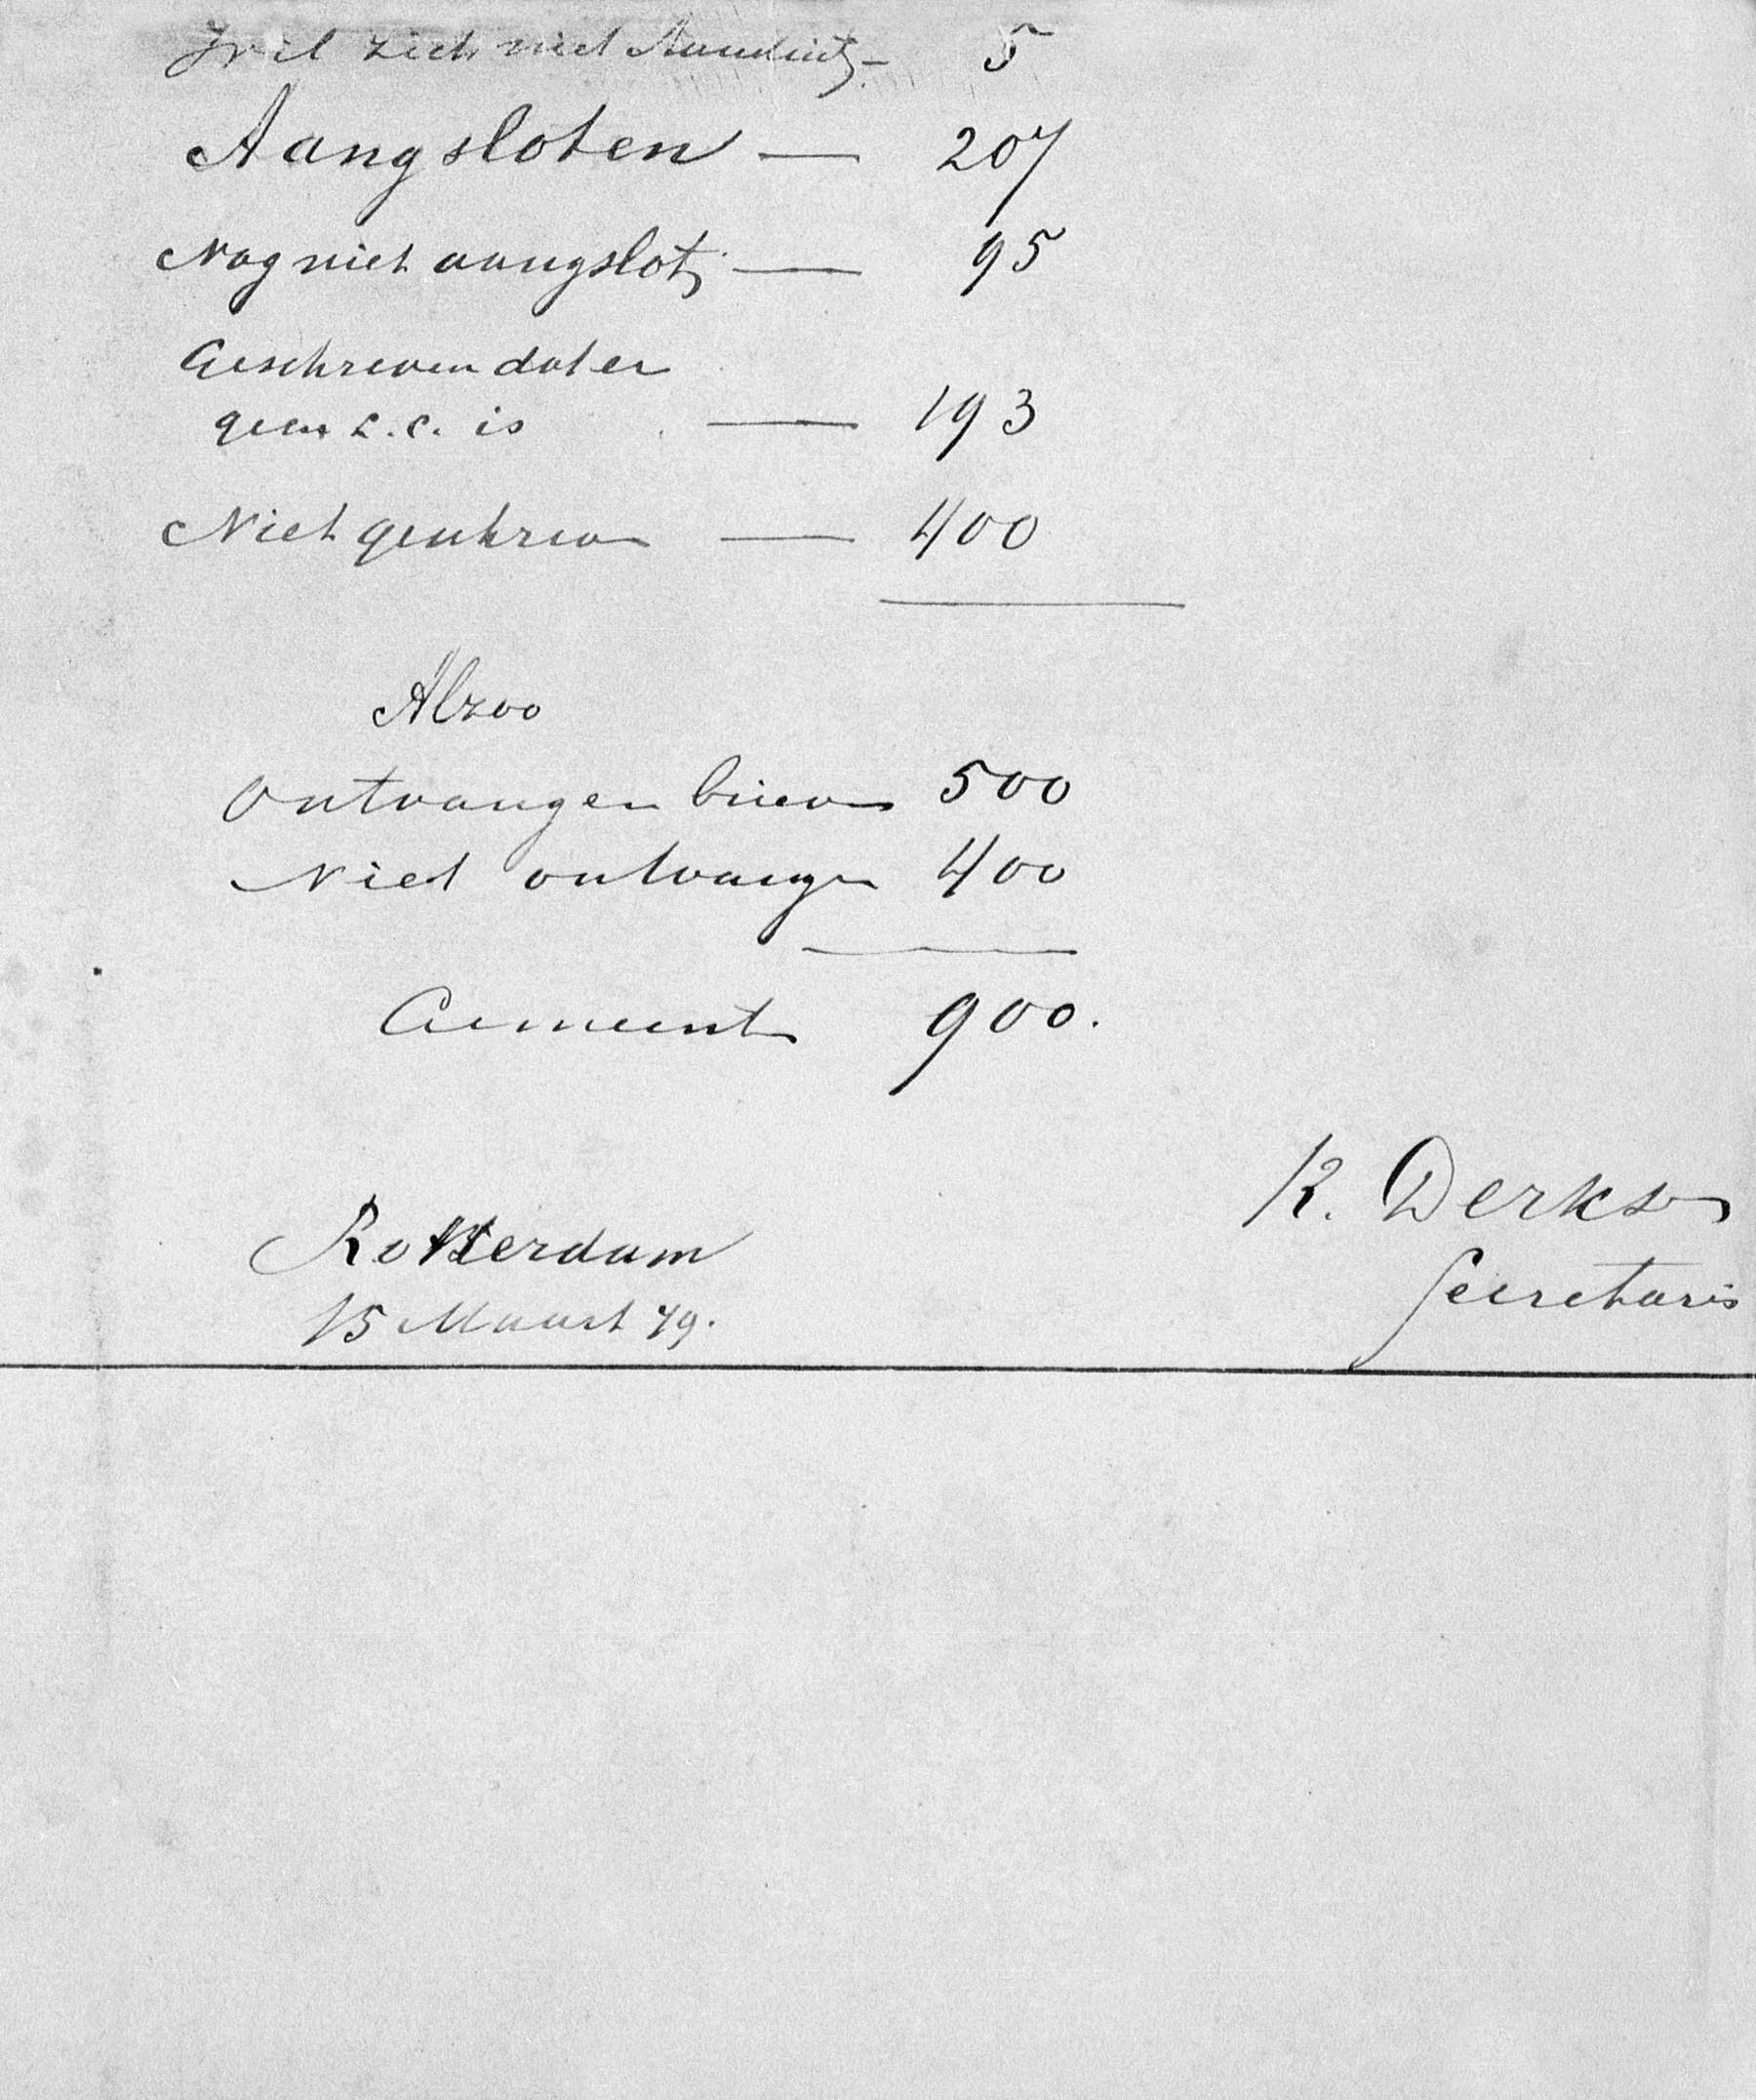 Wil zich niet Aansluiten — 5
Aangsloten — 207
Nog niet aangsloten — 95
Geschreven dat er
geen L.C. is — 193
Niet geschreven — 400
Alzoo
Ontvangen brieven 500
Niet ontvangen 400
Gemeent 900.
K. Derksen
Rotterdam
Secretaris
15 Maart 79.